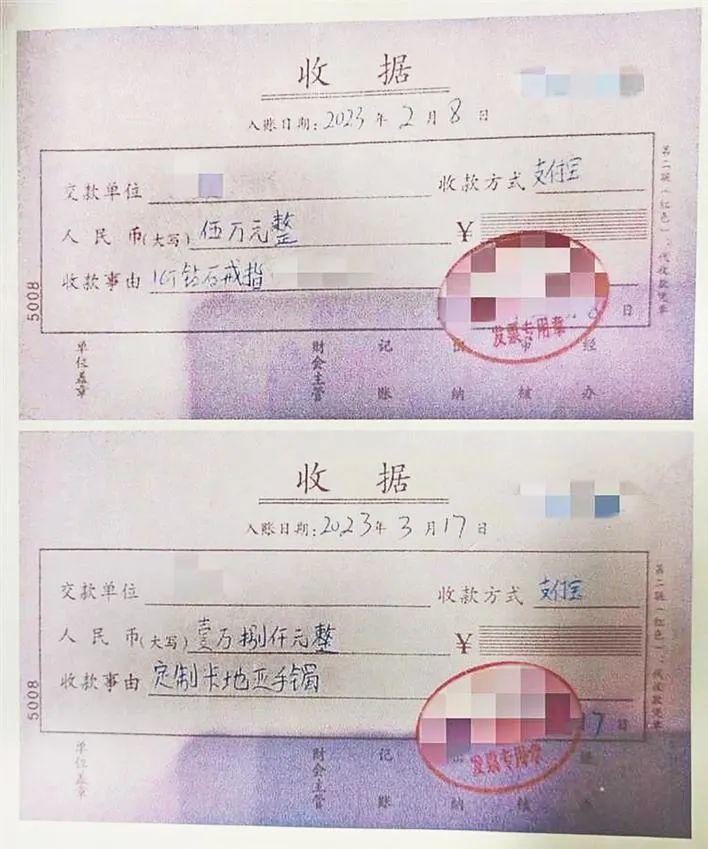 收 据
入账日期:2023年2月8日
交款单位 收款方式 支付宝
人民币(大写) 伍万元整 ¥
收款事由 钻石戒指
日
发票专用章
单位盖章 财会主管 记账 出纳 审核 经办
5008
第二联(红色)、代收款凭章
收 据
入账日期:2023年3月17日
交款单位 收款方式 支付宝
人民币(大写) 壹万捌仟元整 ¥
收款事由 定制卡地亚手镯
17日
发票专用章
单位盖章 财会主管 记账 纳 核
5008
第二联(红色)、代收款凭章